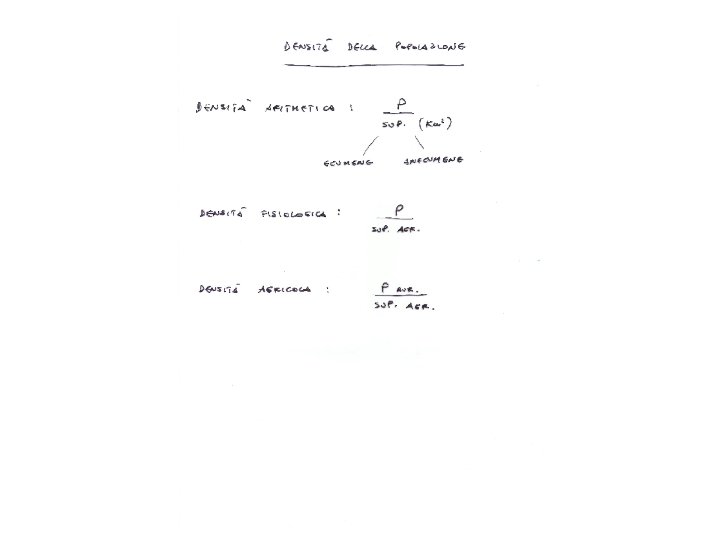 DENSITÀ DELLA POPOLAZIONE
DENSITÀ ARITMETICA : P
SUP. (Km²)
ECUMENE ANECUMENE
DENSITÀ FISIOLOGICA : P
SUP. AGR.
DENSITÀ AGRICOLA : P RUR.
SUP. AGR.